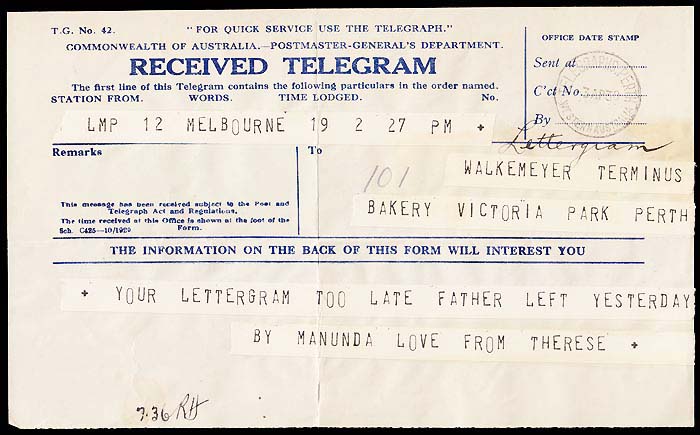 T.G. No. 42. "FOR QUICK SERVICE USE THE TELEGRAPH."
COMMONWEALTH OF AUSTRALIA.—POSTMASTER-GENERAL'S DEPARTMENT.
RECEIVED TELEGRAM
The first line of this Telegram contains the following particulars in the order named.
STATION FROM. WORDS. TIME LODGED. No.
OFFICE DATE STAMP
Sent at
C'ct No.
By
LMP 12 MELBOURNE 19 2 27 PM +
Lettergram
Remarks
To
101
WALKEMEYER TERMINUS
BAKERY VICTORIA PARK PERTH
This message has been received subject to the Post and
Telegraph Act and Regulations.
The time received at this Office is shown at the foot of the
Form.
Sch. C425—10/1929
THE INFORMATION ON THE BACK OF THIS FORM WILL INTEREST YOU
+ YOUR LETTERGRAM TOO LATE FATHER LEFT YESTERDAY
BY MANUNDA LOVE FROM THERESE +
7.36 RH